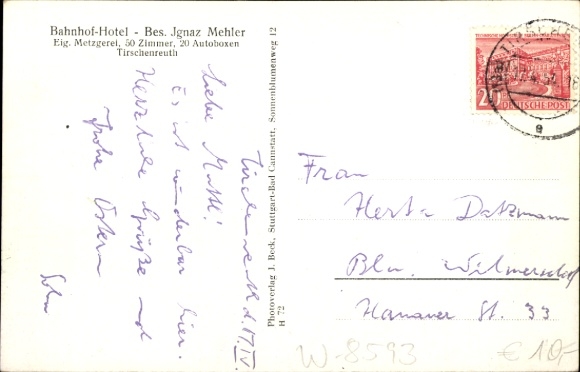 Bahnhof-Hotel - Bes. Jgnaz Mehler
Eig. Metzgerei, 50 Zimmer, 20 Autoboxen
Tirschenreuth
Tirschenreuth d. 17.IV.
Liebe Mutti!
Es ist wunderbar hier.
Herzliche Grüße und
frohe Ostern
Photoverlag J. Beck, Stuttgart-Bad Cannstatt, Sonnenblumenweg 12
H 72
20 DEUTSCHE POST
Frau
Herta Datzmann
Bln. Wilmersdorf
Hanauer St. 33
W-8593
€ 10,-